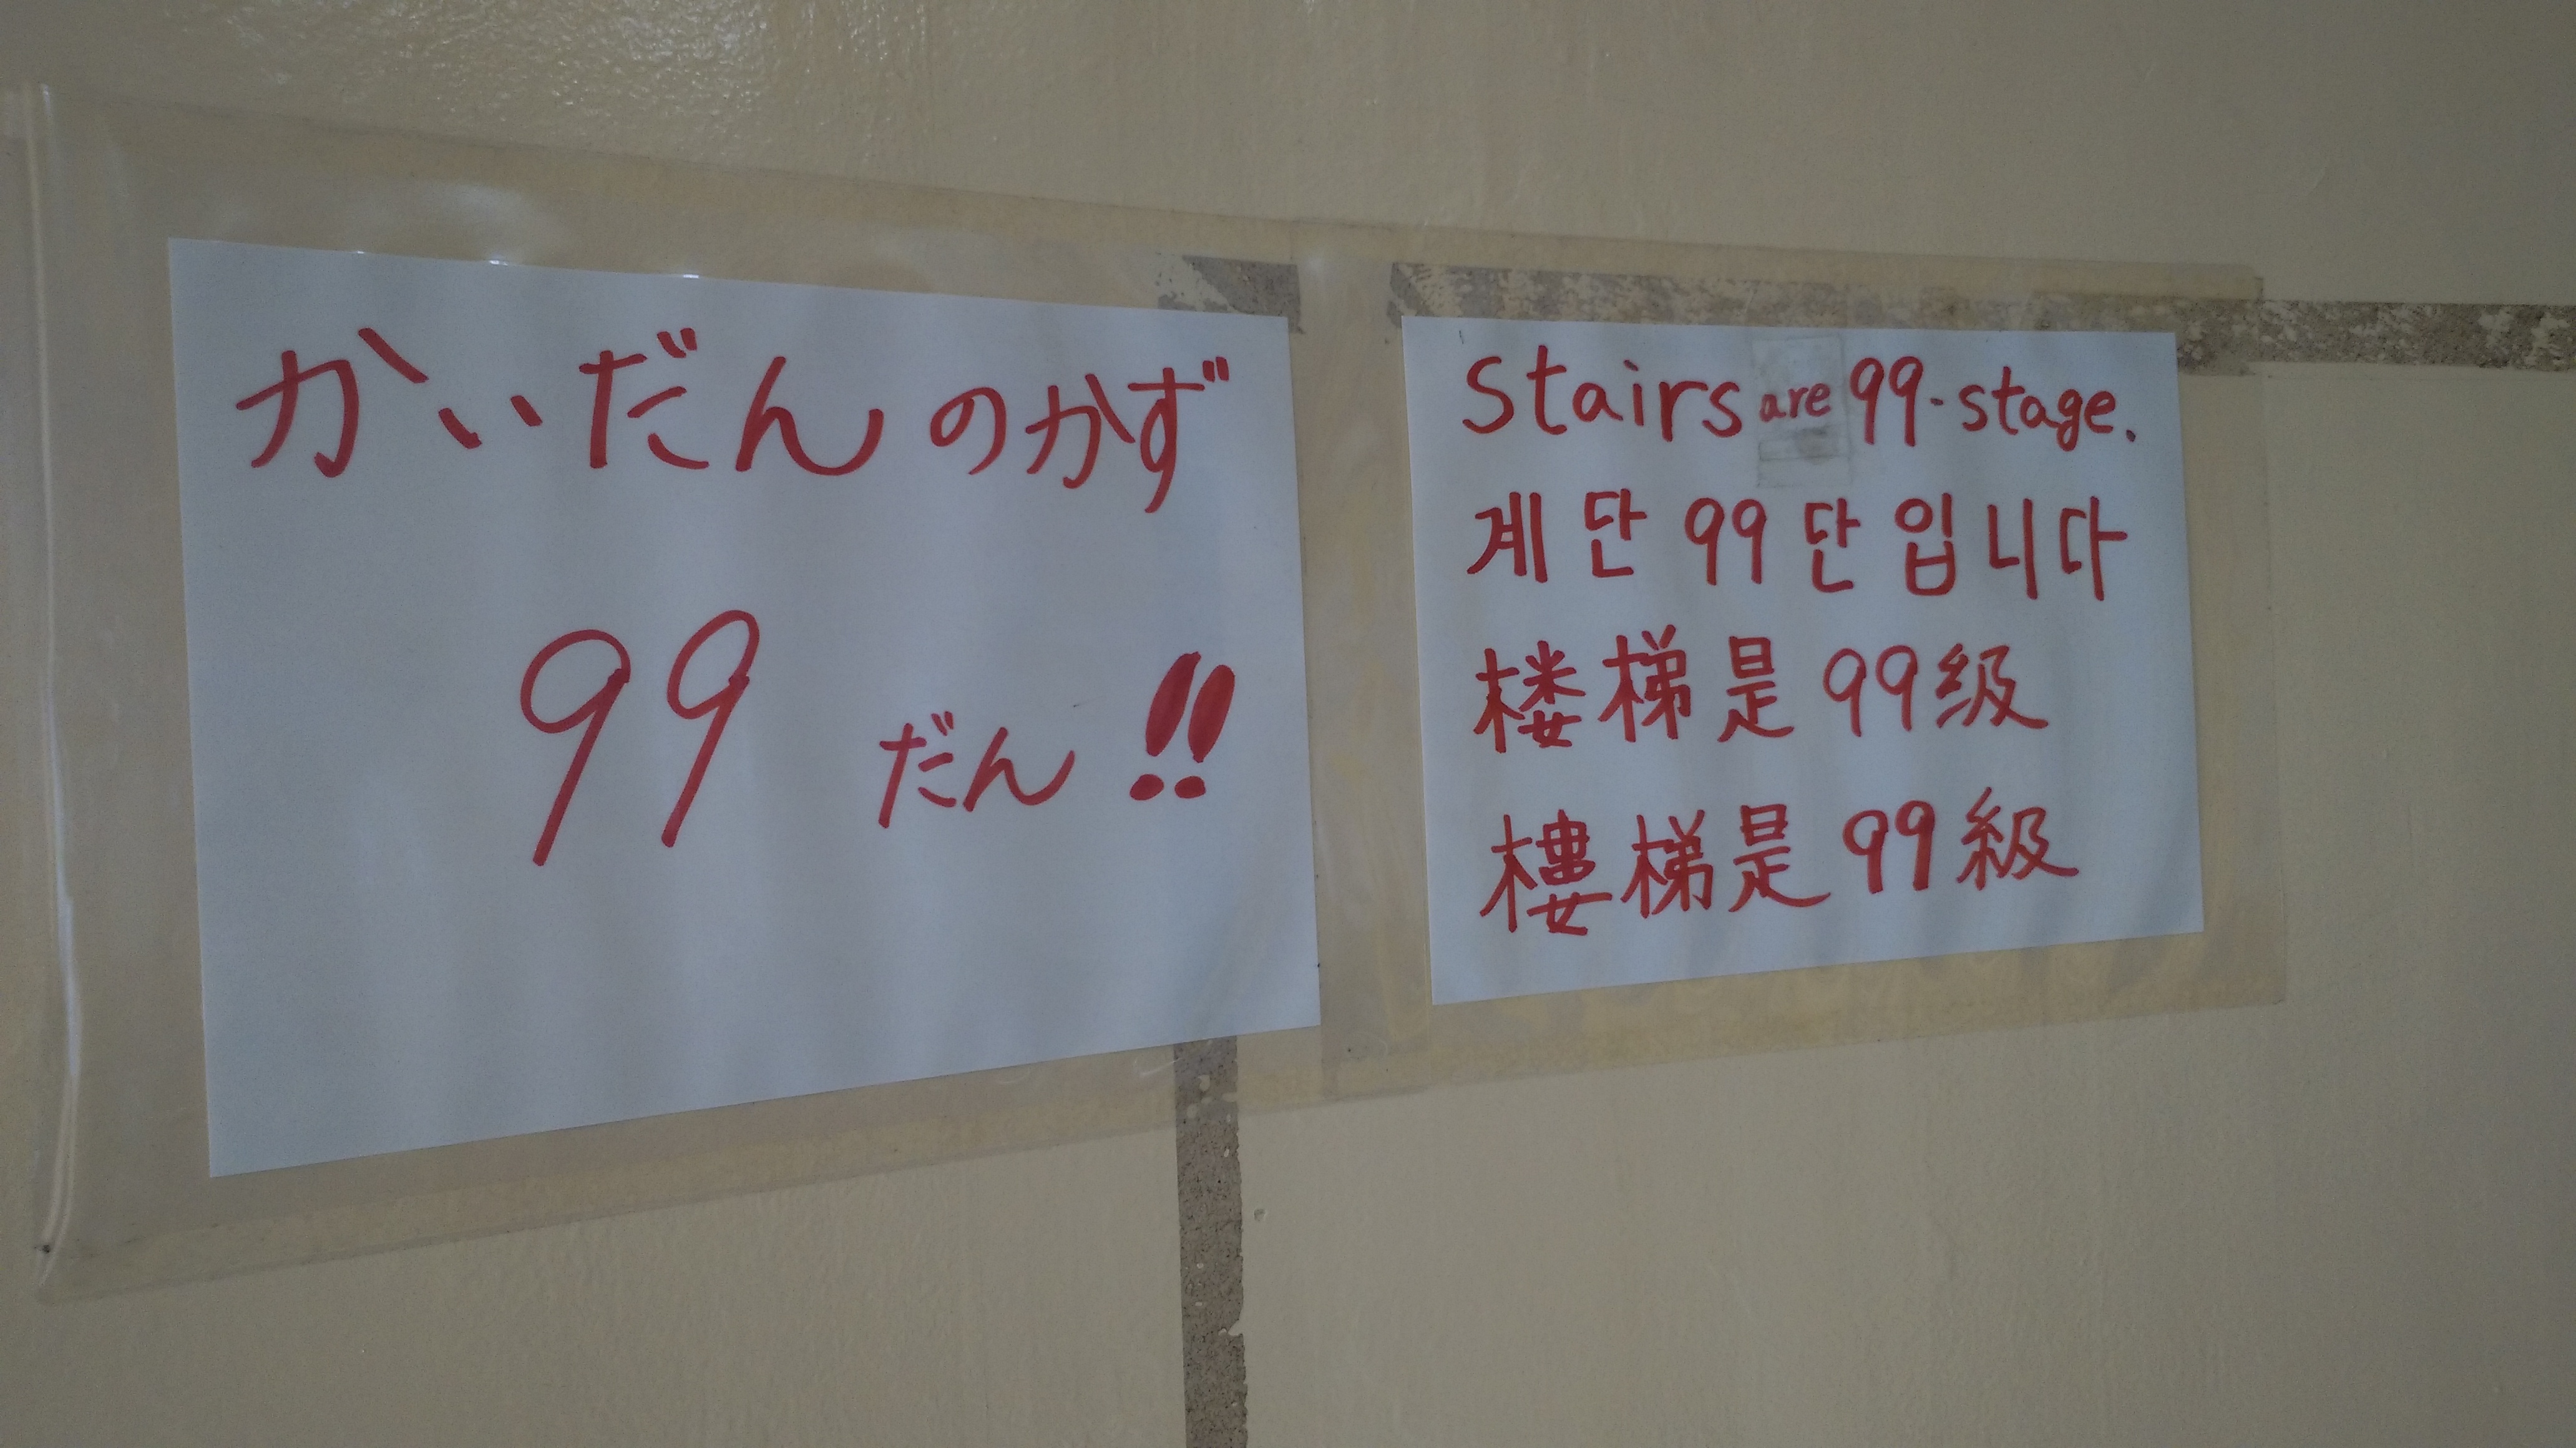 かいだんのかず
99 だん!!
Stairs are 99-stage.
계단 99단입니다
楼梯是99级
樓梯是99級